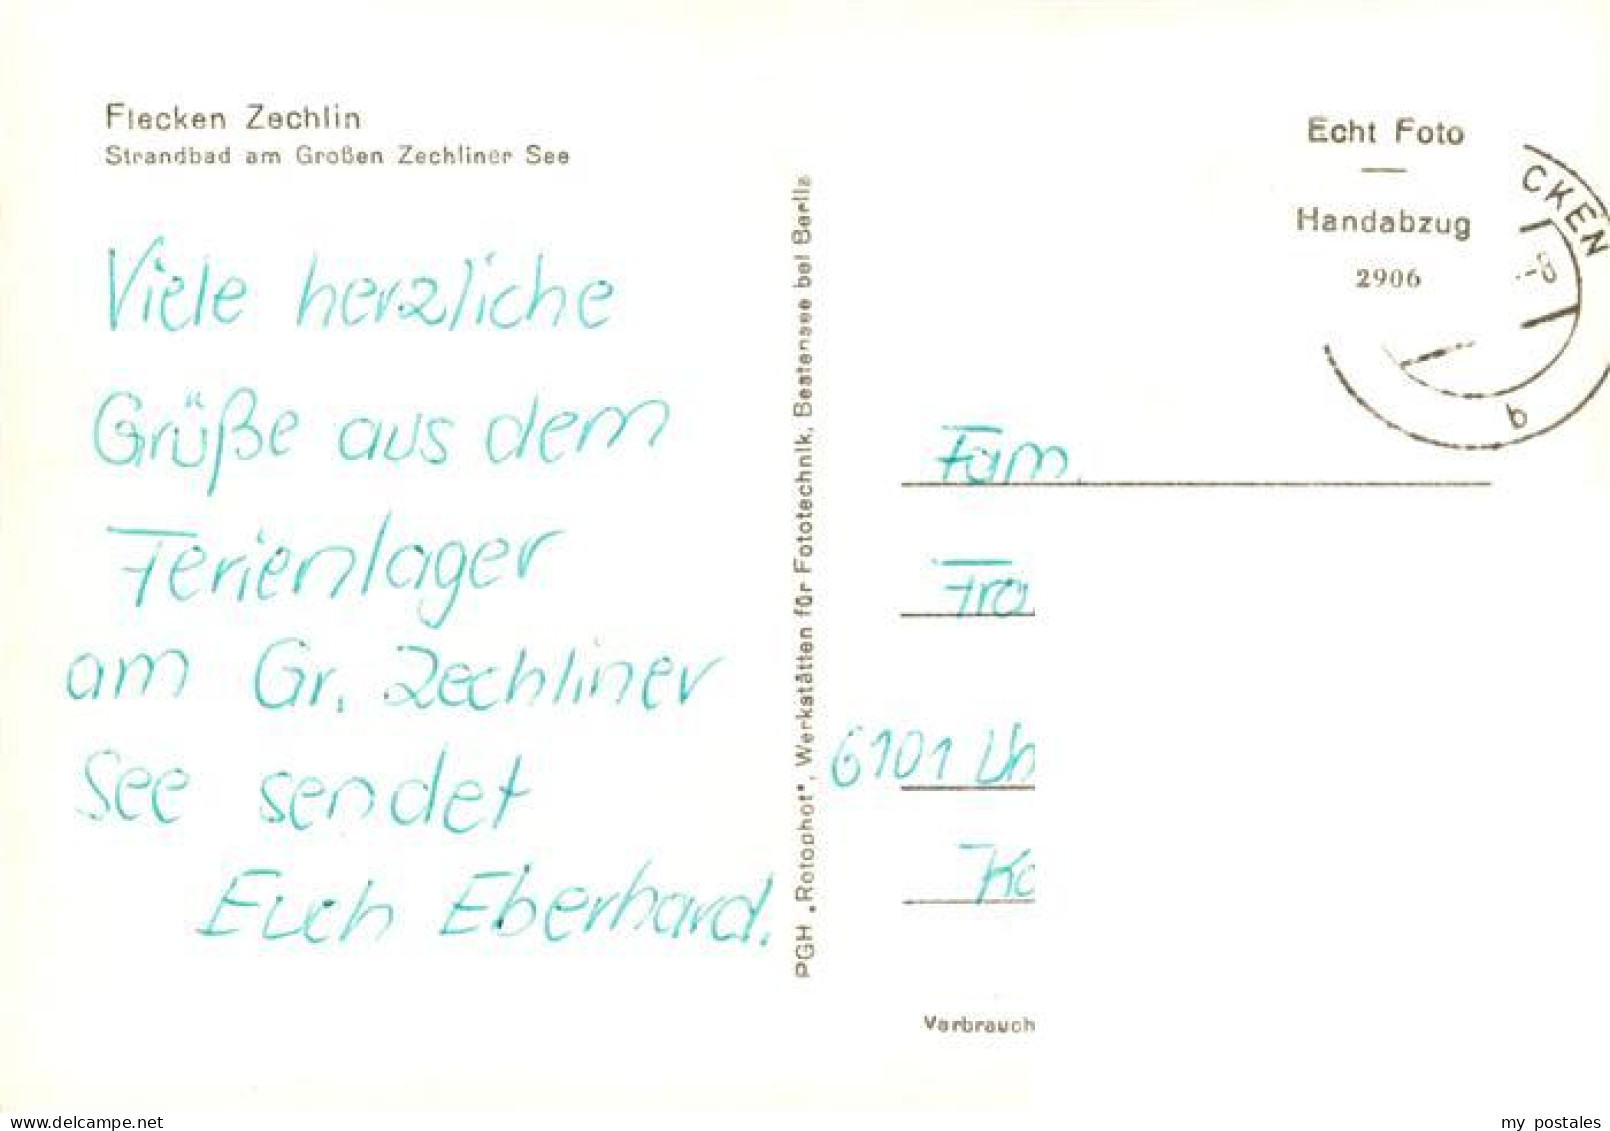 Flecken Zechlin
Strandbad am Großen Zechliner See
Viele herzliche
Grüße aus dem
Ferienlager
am Gr. Zechliner
See sendet
Euch Eberhard.
PGH „Rotophot", Werkstätten für Fototechnik, Bestensee bei Berlin
Echt Foto
Handabzug
2906
CKEN
b
Fam.
Fra
6101
Ka
Verbrauch
delcampe.net
my postales